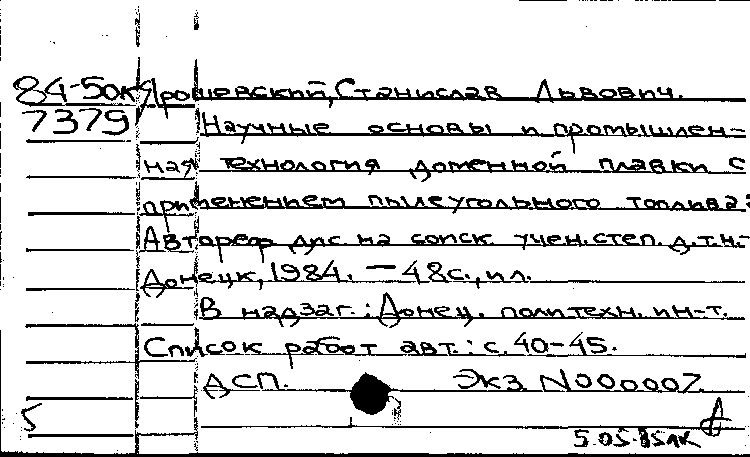 84-50к Ярошевский, Станислав Львович.
7379 Научные основы и промышлен-
ная технология доменной плавки с
применением пылеугольного топлива:
Автореф дис. на соиск. учен. степ. д.т.н.-
Донецк, 1984. - 48с., ил.
В надзаг.: Донец. политехн. ин-т.
Список работ авт.: с. 40-45.
ДСП. Экз N000007.
5